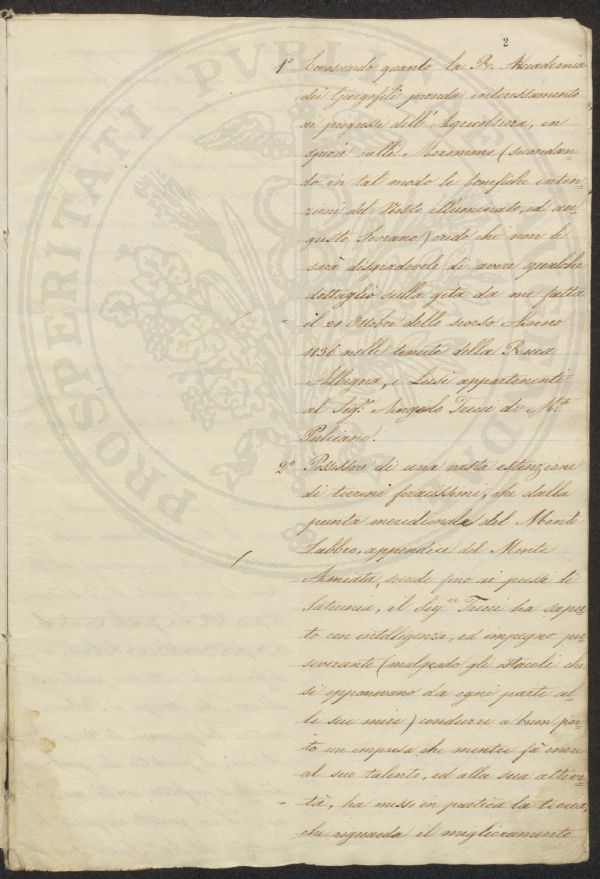 2
1º Conoscendo quanto la R. Accademia
dei Georgofili prenda interessamento
ai progressi dell'Agricoltura, in
specie nelle Maremme (secondan-
do in tal modo le benefiche inten-
zioni del Nostro illuminato, ed au-
gusto Sovrano) credo che non le
sarà disgradevole di avere qualche
dettaglio sulla gita da me fatta
il 21 Ottobre dello scorso Anno
1836 nelle tenute della Rocca
Albegna, e Lusi appartenenti
al Sig.r Angelo Tucci di M.te
Pulciano.
2º Possessore di una vasta estenzione
di terreni feracissimi, che dalla
punta meridionale del Monte
Labbro, appendice del Monte
Amiata, scende fino ai pressi di
Saturnia, il Sig.re Tucci ha sapu-
to con intelligenza, ed impegno per-
severante (malgrado gli ostacoli che
si opponevano da ogni parte al-
le sue mire) condurre a buon por-
to un impresa che mentre fà onore
al suo talento, ed alla sua attivi-
tà, ha messo in pratica la teoria,
che riguarda il miglioramento
PROSPERITATI PVBLICAE